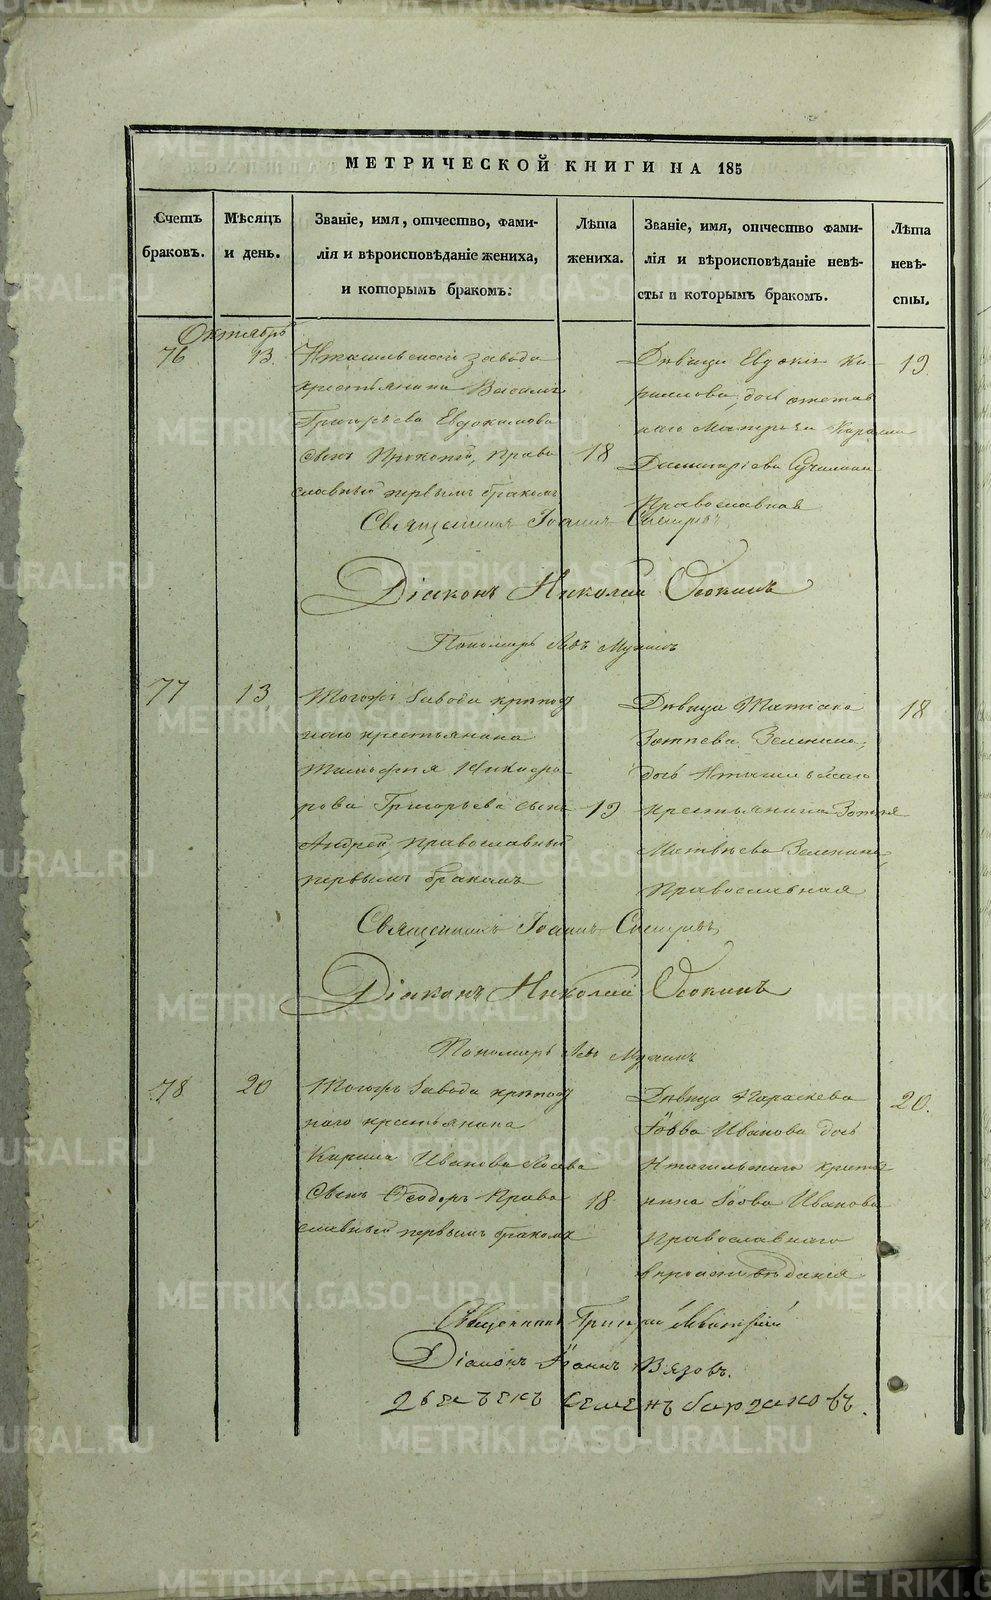 МЕТРИЧЕСКОЙ КНИГИ НА 185
Счетъ браковъ.
Мѣсяцъ и день.
Званіе, имя, отчество, фами-
лія и вѣроисповѣданіе жениха,
и которымъ бракомъ:
Лѣта
жениха.
Званіе, имя, отчество фами-
лія и вѣроисповѣданіе невѣ-
сты и которымъ бракомъ.
Лѣта
невѣ-
сты.
Октябрь
76
13.
Нтагильскаго завода
крестьянина
Григорьева Евдокимова
сынъ Прокопій, Право
славный первымъ бракомъ
18
Дѣвица Евдокія Ки-
рилова, дочь отстав
наго
Православная
19.
Священникъ Іоаннъ
Діаконъ Николай Осокинъ
Пономарь Левъ
77
13
Тогожъ Завода
наго крестьянина
Тимофея Никифо
рова Григорьева сынъ
Андрей православный
первымъ бракомъ
19
Дѣвица Татіана
Зотеева Зеленина,
дочь Нтагильскаго
крестьянина Зотея
Матвѣева Зеленина,
Православная
18
Священникъ Іоаннъ
Діаконъ Николай Осокинъ
Пономарь Левъ
78
20
Тогожъ Завода
наго крестьянина
Кирила Иванова Лосева
Сынъ Ѳеодоръ Право
славный первымъ бракомъ
18
Дѣвица Параскева
Іовва Иванова дочь
Нтагильскаго кресть
нина Іовва Иванова
Православнаго
вѣроисповѣданія
20.
Священникъ Григорій
Діаконъ Іоаннъ Вязовъ.
Семенъ
METRIKI.GASO-URAL.RU